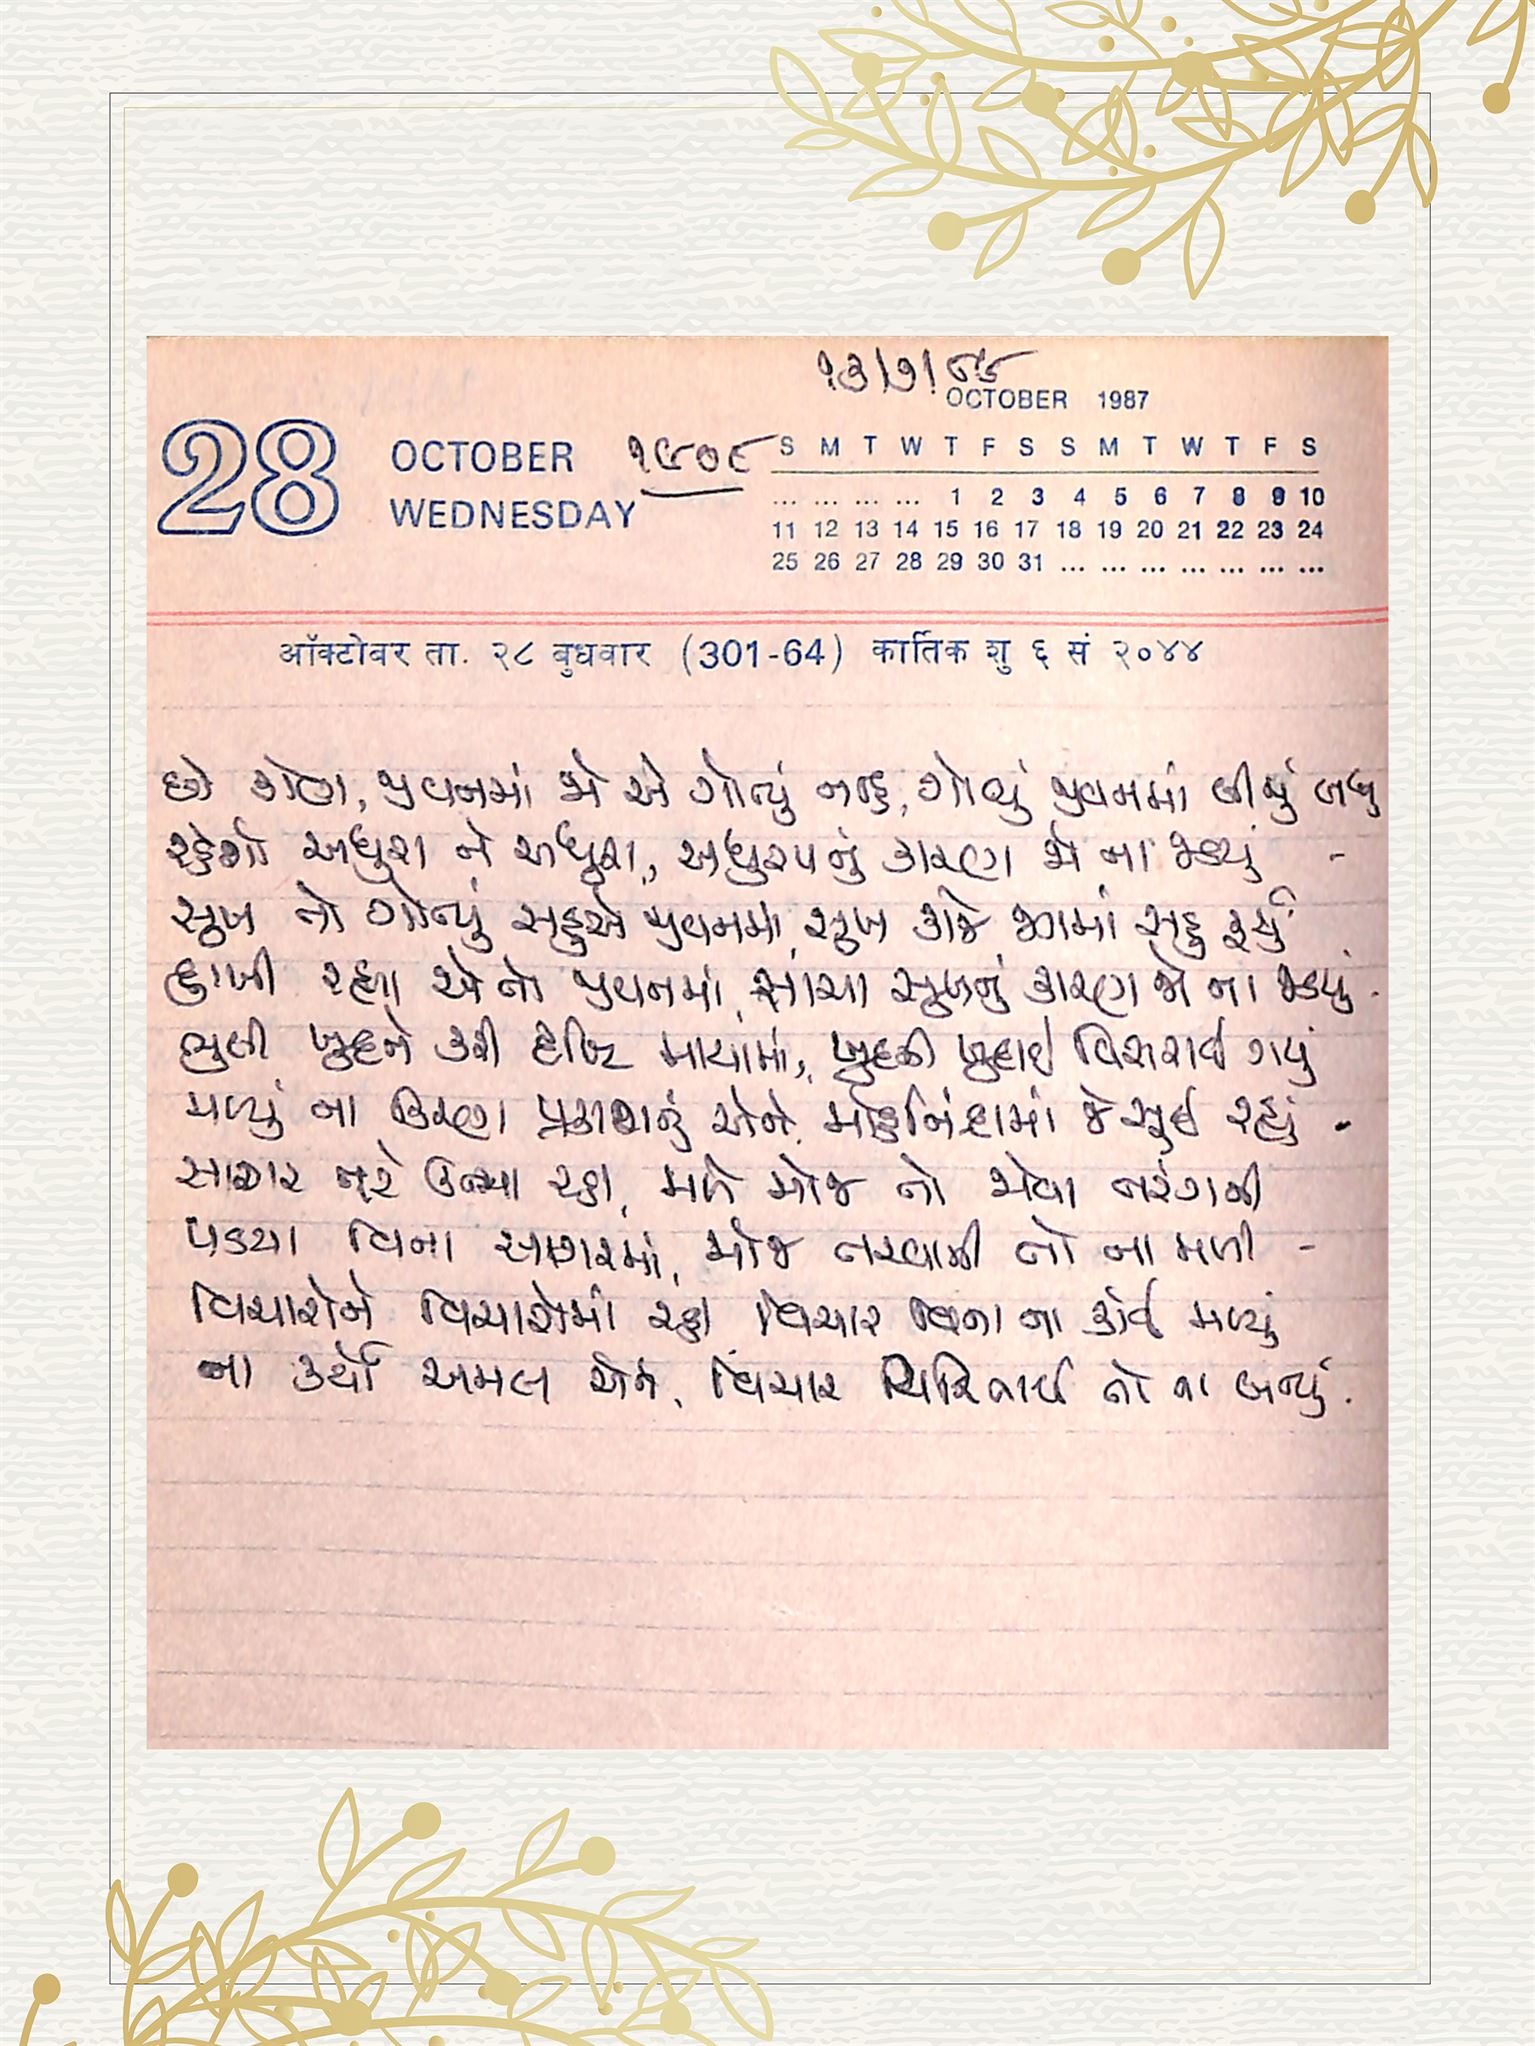 ૧૩/૭/૯૬
OCTOBER 1987
28 OCTOBER ૧૬૦૯ S M T W T F S S M T W T F S
WEDNESDAY
... ... ... ... 1 2 3 4 5 6 7 8 9 10
11 12 13 14 15 16 17 18 19 20 21 22 23 24
25 26 27 28 29 30 31 ... ... ... ... ... ... ...
ऑक्टोबर ता. २८ बुधवार (301-64) कार्तिक शु ६ सं २०४४
છો કોણ, જીવનમાં જો એ ગોત્યું નહિ, ગોત્યું જીવનમાં બીજું બધું
રહેશો અધુરા ને અધુરા, અધુરપનું કારણ જો ના જડયું -
સુખ તો ગોત્યું સહુએ જીવનમાં, સુખ કાજે જગમાં સહુ ફર્યું
દુઃખી રહ્યા એ તો જીવનમાં, સાચા સુખનું કારણ જો ના જડયું -
ભુલી ખુદને કરી દૃષ્ટિ માયામાં, ખુદની ખુદાઈ વિસરાઈ ગયું
મળ્યું ના કિરણ પ્રકાશનું એને, મોહનિંદ્રામાં જે સુઈ રહ્યું -
સાગર તટે ઉભા રહી, મળે મોજ તો જોવા તરંગની
પડયા વિના સાગરમાં, મોજ તરવાની તો ના મળી -
વિચારોને વિચારોમાં રહી વિચાર વિના ના કોઈ મળ્યું
ના કર્યો અમલ એને, વિચાર તો ના બન્યું.